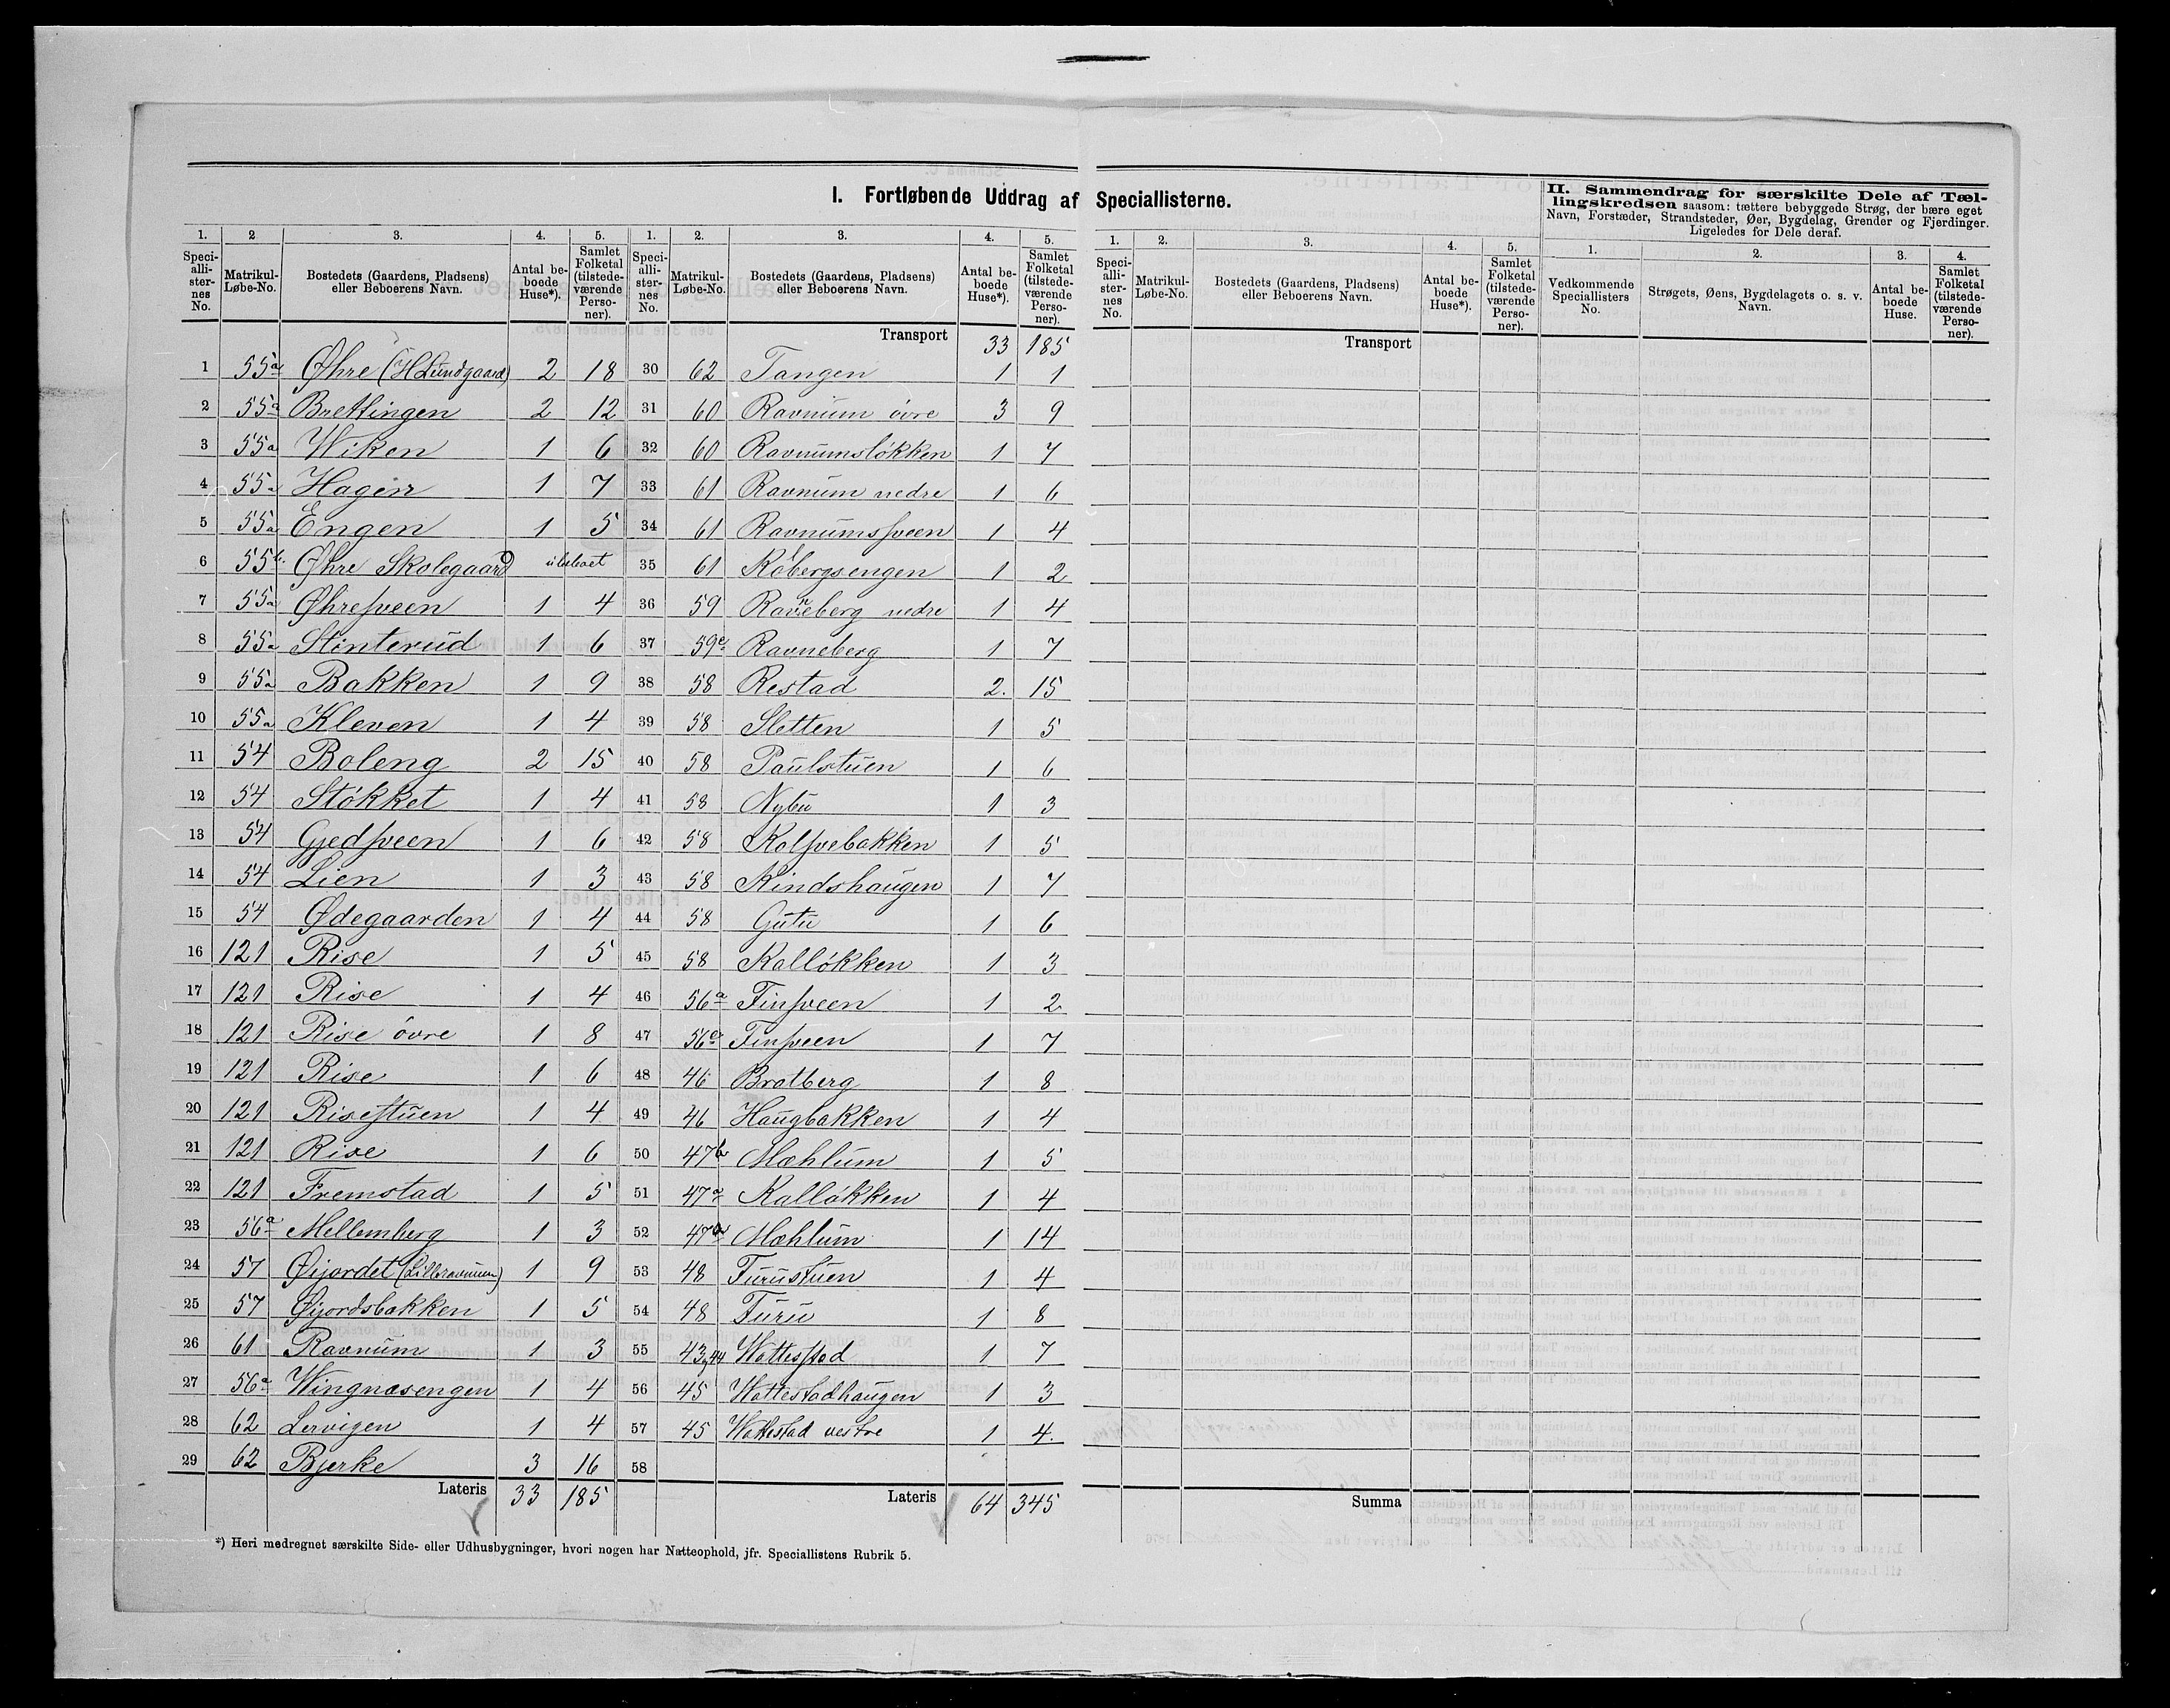 I. Fortløbende Uddrag af Speciallisterne.
II. Sammendrag for særskilte Dele af Tæl-
lingskredsen saasom: tættere bebyggede Strøg, der bære eget
Navn, Forstæder, Strandsteder, Øer, Bygdelag, Grender og Fjerdinger.
Ligeledes for Dele deraf.
1. 2 3. 4. 5. 1. 2. 3. 4. 5. 1. 2. 3. 4. 5. 1. 2. 3. 4.
Speci-alli-ster-nes No. Matrikul-Løbe-No. Bostedets (Gaardens, Pladsens) eller Beboerens Navn. Antal be-boede Huse*). Samlet Folketal (tilstede-værende Perso-ner).
Speci-alli-ster-nes No. Matrikul-Løbe-No. Bostedets (Gaardens, Pladsens) eller Beboerens Navn. Antal be-boede Huse*). Samlet Folketal (tilstede-værende Perso-ner).
Speci-alli-ster-nes No. Matrikul-Løbe-No. Bostedets (Gaardens, Pladsens) eller Beboerens Navn. Antal be-boede Huse*). Samlet Folketal (tilstede-værende Perso-ner).
Vedkommende Speciallisters No. Strøgets, Øens, Bygdelagets o. s. v. Navn. Antal be-boede Huse. Samlet Folketal (tilstede-værende Perso-ner).
1 55a Øhre (H Lundgaard) 2 18
2 55a Brettingen 2 12
3 55a Wiken 1 6
4 55a Hagen 1 7
5 55a Engen 1 5
6 55b Øhre Skolegaard ubeboet
7 55a Øhresveen 1 4
8 55a Slinterud 1 6
9 55a Bakken 1 9
10 55a Kleven 1 4
11 54 Boleng 2 15
12 54 Støkket 1 4
13 54 Gjedsveen 1 6
14 54 Lien 1 3
15 54 Ødegaarden 1 4
16 121 Rise 1 5
17 121 Rise 1 4
18 121 Rise övre 1 8
19 121 Rise 1 6
20 121 Risestuen 1 4
21 121 Rise 1 6
22 121 Fremstad 1 5
23 56a Mellemberg 1 3
24 57 Øijordet (Lilleravnum) 1 9
25 57 Øijordsbakken 1 5
26 61 Ravnum 1 3
27 56a Wingnæsengen 1 4
28 62 Lervigen 1 4
29 62 Bjerke 3 16
Lateris 33 185
Transport 33 185
30 62 Tangen 1 1
31 60 Ravnum övre 3 9
32 60 Ravnumsløkken 1 7
33 61 Ravnum nedre 1 6
34 61 Ravnumsveen 1 4
35 61 Röbergsengen 1 2
36 59 Ravneberg nedre 1 4
37 59c Ravneberg 1 7
38 58 Restad 2. 15
39 58 Sletten 1 5
40 58 Paulstuen 1 6
41 58 Nybu 1 3
42 58 Kolsvebakken 1 5
43 58 Kindshaugen 1 7
44 58 Gutu 1 6
45 58 Kalløkken 1 3
46 56a Finsveen 1 2
47 56c Finsveen 1 7
48 46 Bratberg 1 8
49 46 Haugbakken 1 4
50 47b Mæhlum 1 5
51 47a Kalløkken 1 4
52 47b Mæhlum 1 14
53 48 Furustuen 1 4
54 48 Furu 1 8
55 43,44 Wattestad 1 7
56 45 Wattestadhaugen 1 3
57 45 Wattestad vestre 1 4.
58
Lateris 64 345
Transport
Summa
*) Heri medregnet særskilte Side- eller Udhusbygninger, hvori nogen har Natteophold, jfr. Speciallistens Rubrik 5.